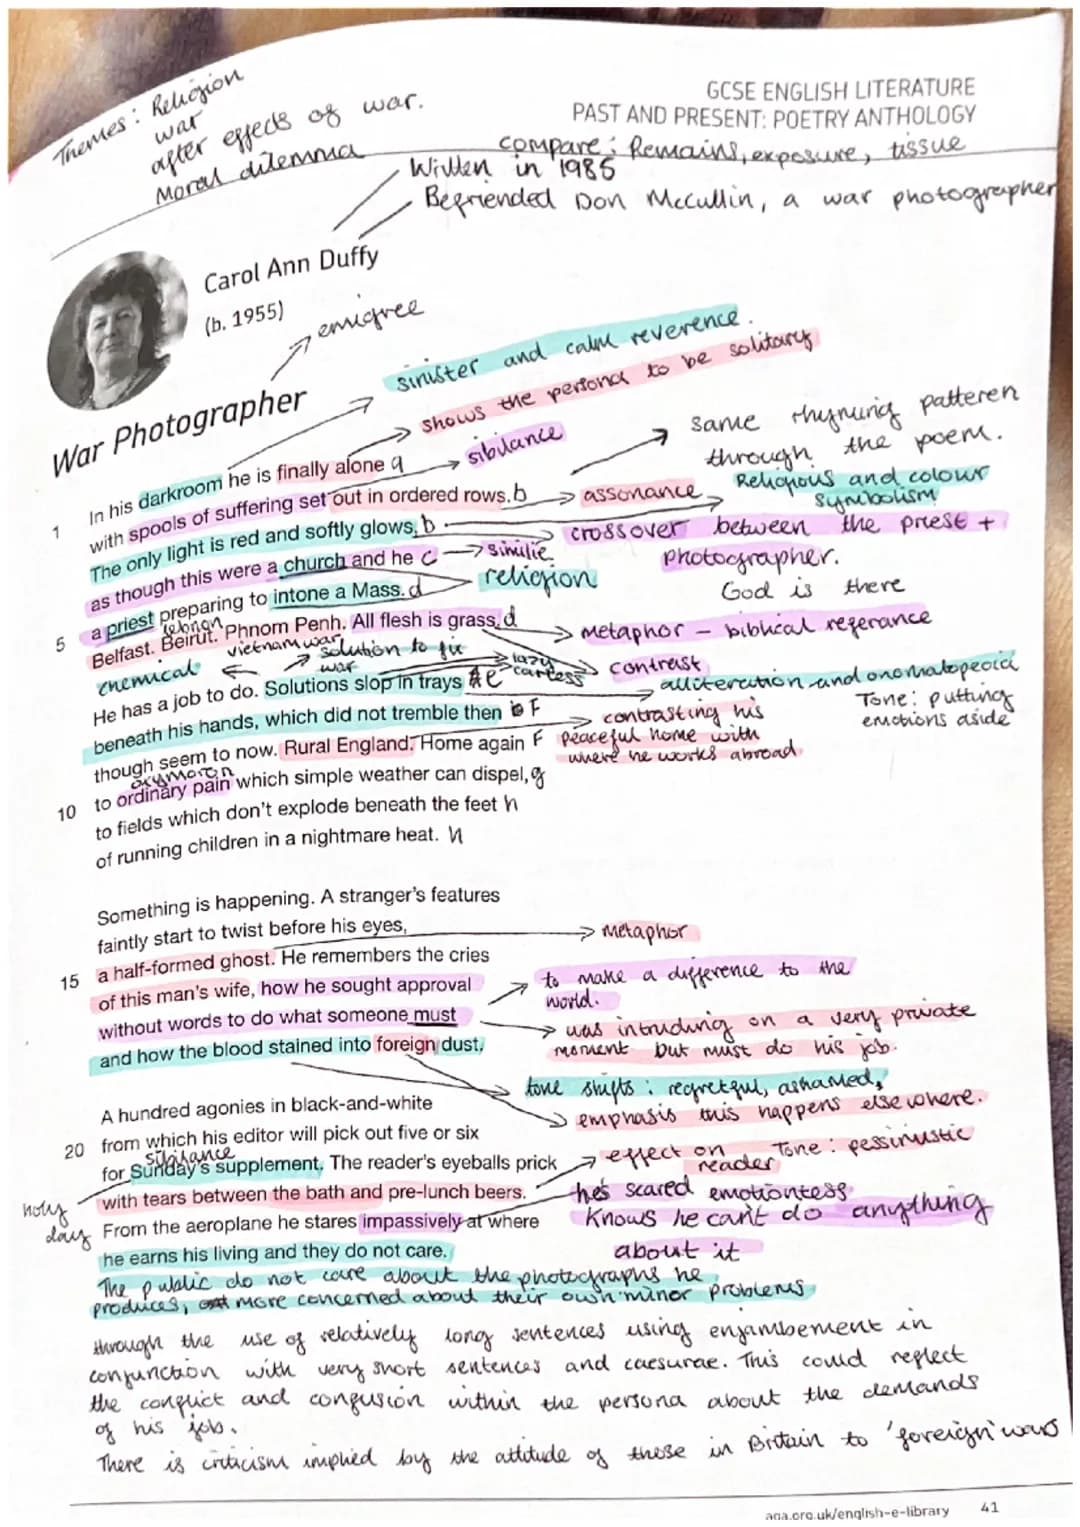 Themes: Religion
war
after effects of war.
Moral dilemma
GCSE ENGLISH LITERATURE
PAST AND PRESENT: POETRY ANTHOLOGY
compare: Remains, exposure, tissue
Written in 1985
Befriended Don McCullin, a war photographer
Carol Ann Duffy
(b. 1955)
emigree
War Photographer
sinister and calm reverence.
shows the persona to be solitary
sibilance
same rhyming patteren
through the poem.
1 In his darkroom he is finally alone a
with spools of suffering set out in ordered rows. b
assonance
Religious and colour
symbolism
The only light is red and softly glows, b
crossover between the priest +
photographer.
God is there
as though this were a church and he c
similie
religion
a priest preparing to intone a Mass. d
lebnon
5 Belfast. Beirut. Phnom Penh. All flesh is grass. d
Metaphor - biblical referance
vietnam war
chemical
solution to fix
war
lazy
carless
contrast
He has a job to do. Solutions slop in trays e
alliteration and onomatopeoid
Tone: putting
emotions aside
beneath his hands, which did not tremble then F
though seem to now. Rural England. Home again F
contrasting his
peaceful home with
where he works abroad
oxymoron
10 to ordinary pain which simple weather can dispel, g
to fields which don't explode beneath the feet h
of running children in a nightmare heat. h
Something is happening. A stranger's features
faintly start to twist before his eyes,
metaphor
15 a half-formed ghost. He remembers the cries
of this man's wife, how he sought approval
to make a difference to the
world.
without words to do what someone must
was intruding on a very private
moment but must do his job.
and how the blood stained into foreign dust.
tone shifts: regretful, ashamed,
emphasis this happens elsewhere.
A hundred agonies in black-and-white
20 from which his editor will pick out five or six
sibilance
for Sunday's supplement. The reader's eyeballs prick
effect on
reader
Tone: pessimistic
holy
day
with tears between the bath and pre-lunch beers.
he's scared emotiontess
From the aeroplane he stares impassively at where
Knows he can't do anything
about it
he earns his living and they do not care.
The public do not care about the photographs he
produces, more concerned about their own minor problems
through the use of relatively long sentences using enjambement in
conjunction with very short sentences and caesurae. This could reflect
the conflict and confusion within the persona about the demands
of his job.
There is criticism implied by the attitude of those in Britain to 'foreign' wars
aqa.org.uk/english-e-library 41